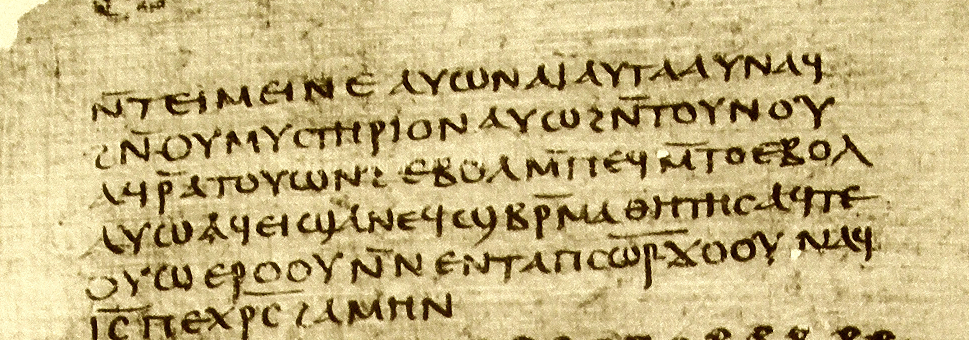 ⲛ̅ⲧⲉⲓⲙⲉⲓⲛⲉ ⲁⲩⲱ ⲛⲁⲓ̈ ⲁⲩⲧⲁⲁⲩ ⲛⲁϥ
ϩⲛ̅ ⲟⲩⲙⲩⲥⲧⲏⲣⲓⲟⲛ ⲁⲩⲱ ϩⲛ̅ ⲧⲟⲩⲛⲟⲩ
ⲁϥⲣ̅ ⲁⲧⲟⲩⲱⲛϩ ⲉⲃⲟⲗ ⲙ̅ⲡⲉϥⲙ̅ⲧⲟ ⲉⲃⲟⲗ
ⲁⲩⲱ ⲁϥⲉⲓ ϣⲁ ⲛⲉϥϣⲃⲣ̅ⲙⲁⲑⲏⲧⲏⲥ ⲁϥⲧⲉ
ⲟⲩⲱ ⲉⲣⲟⲟⲩ ⲛ̅ⲛⲉⲛⲧⲁ ⲡⲥⲱ̅ⲣ̅ ϫⲟⲟⲩ ⲛⲁϥ
ⲓ̅ⲥ̅ ⲡⲉⲭⲣ̅ⲥ̅ ϩⲁⲙⲏⲛ